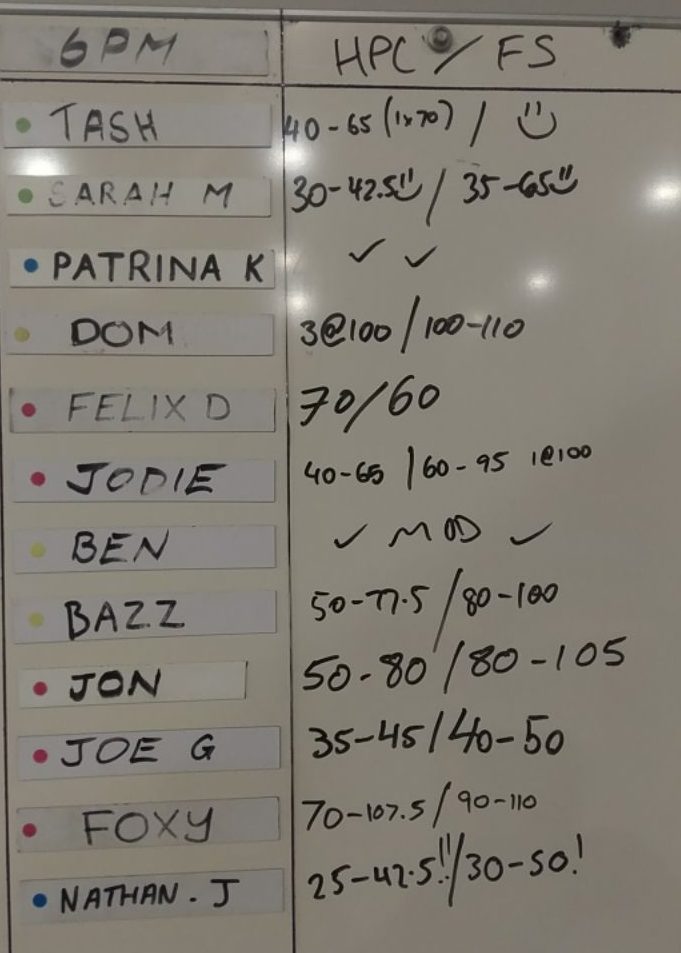 6PM HPC / FS
TASH 40-65 (1x70) /
SARAH M 30-42.5!! / 35-65!!
PATRINA K ✓ ✓
DOM 3@100 / 100-110
FELIX D 70/60
JODIE 40-65 / 60-95 1@100
BEN ✓ MOD ✓
BAZZ 50-77.5 / 80-100
JON 50-80 / 80-105
JOE G 35-45 / 40-50
FOXY 70-107.5 / 90-110
NATHAN.J 25-42.5!! / 30-50!